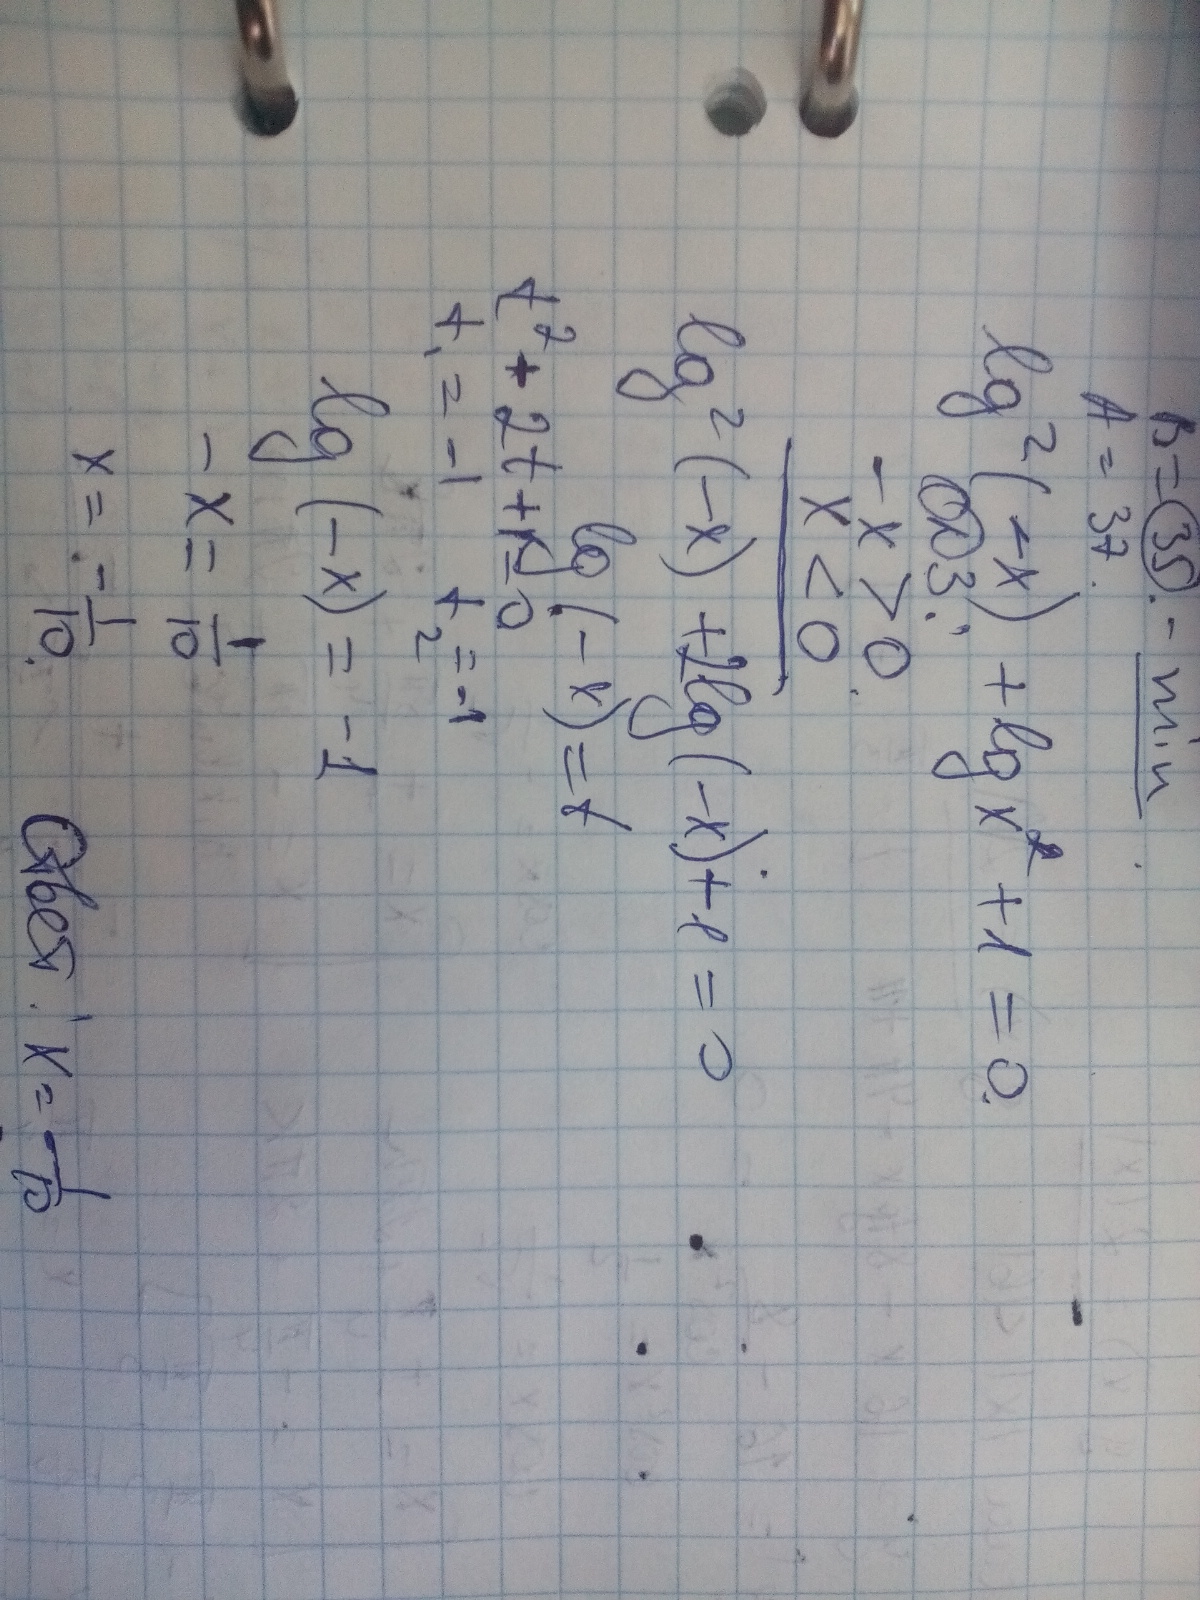 B = 35. - min
A = 37.
lg²(-x) + lg x² + 1 = 0.
ОДЗ:
-x > 0.
x < 0
lg²(-x) + 2lg(-x) + 1 = 0
lg(-x) = t
t² + 2t + 1 = 0
t₁ = -1 t₂ = -1
lg(-x) = -1
-x = 1/10
x = -1/10.
Ответ: x = -1/10